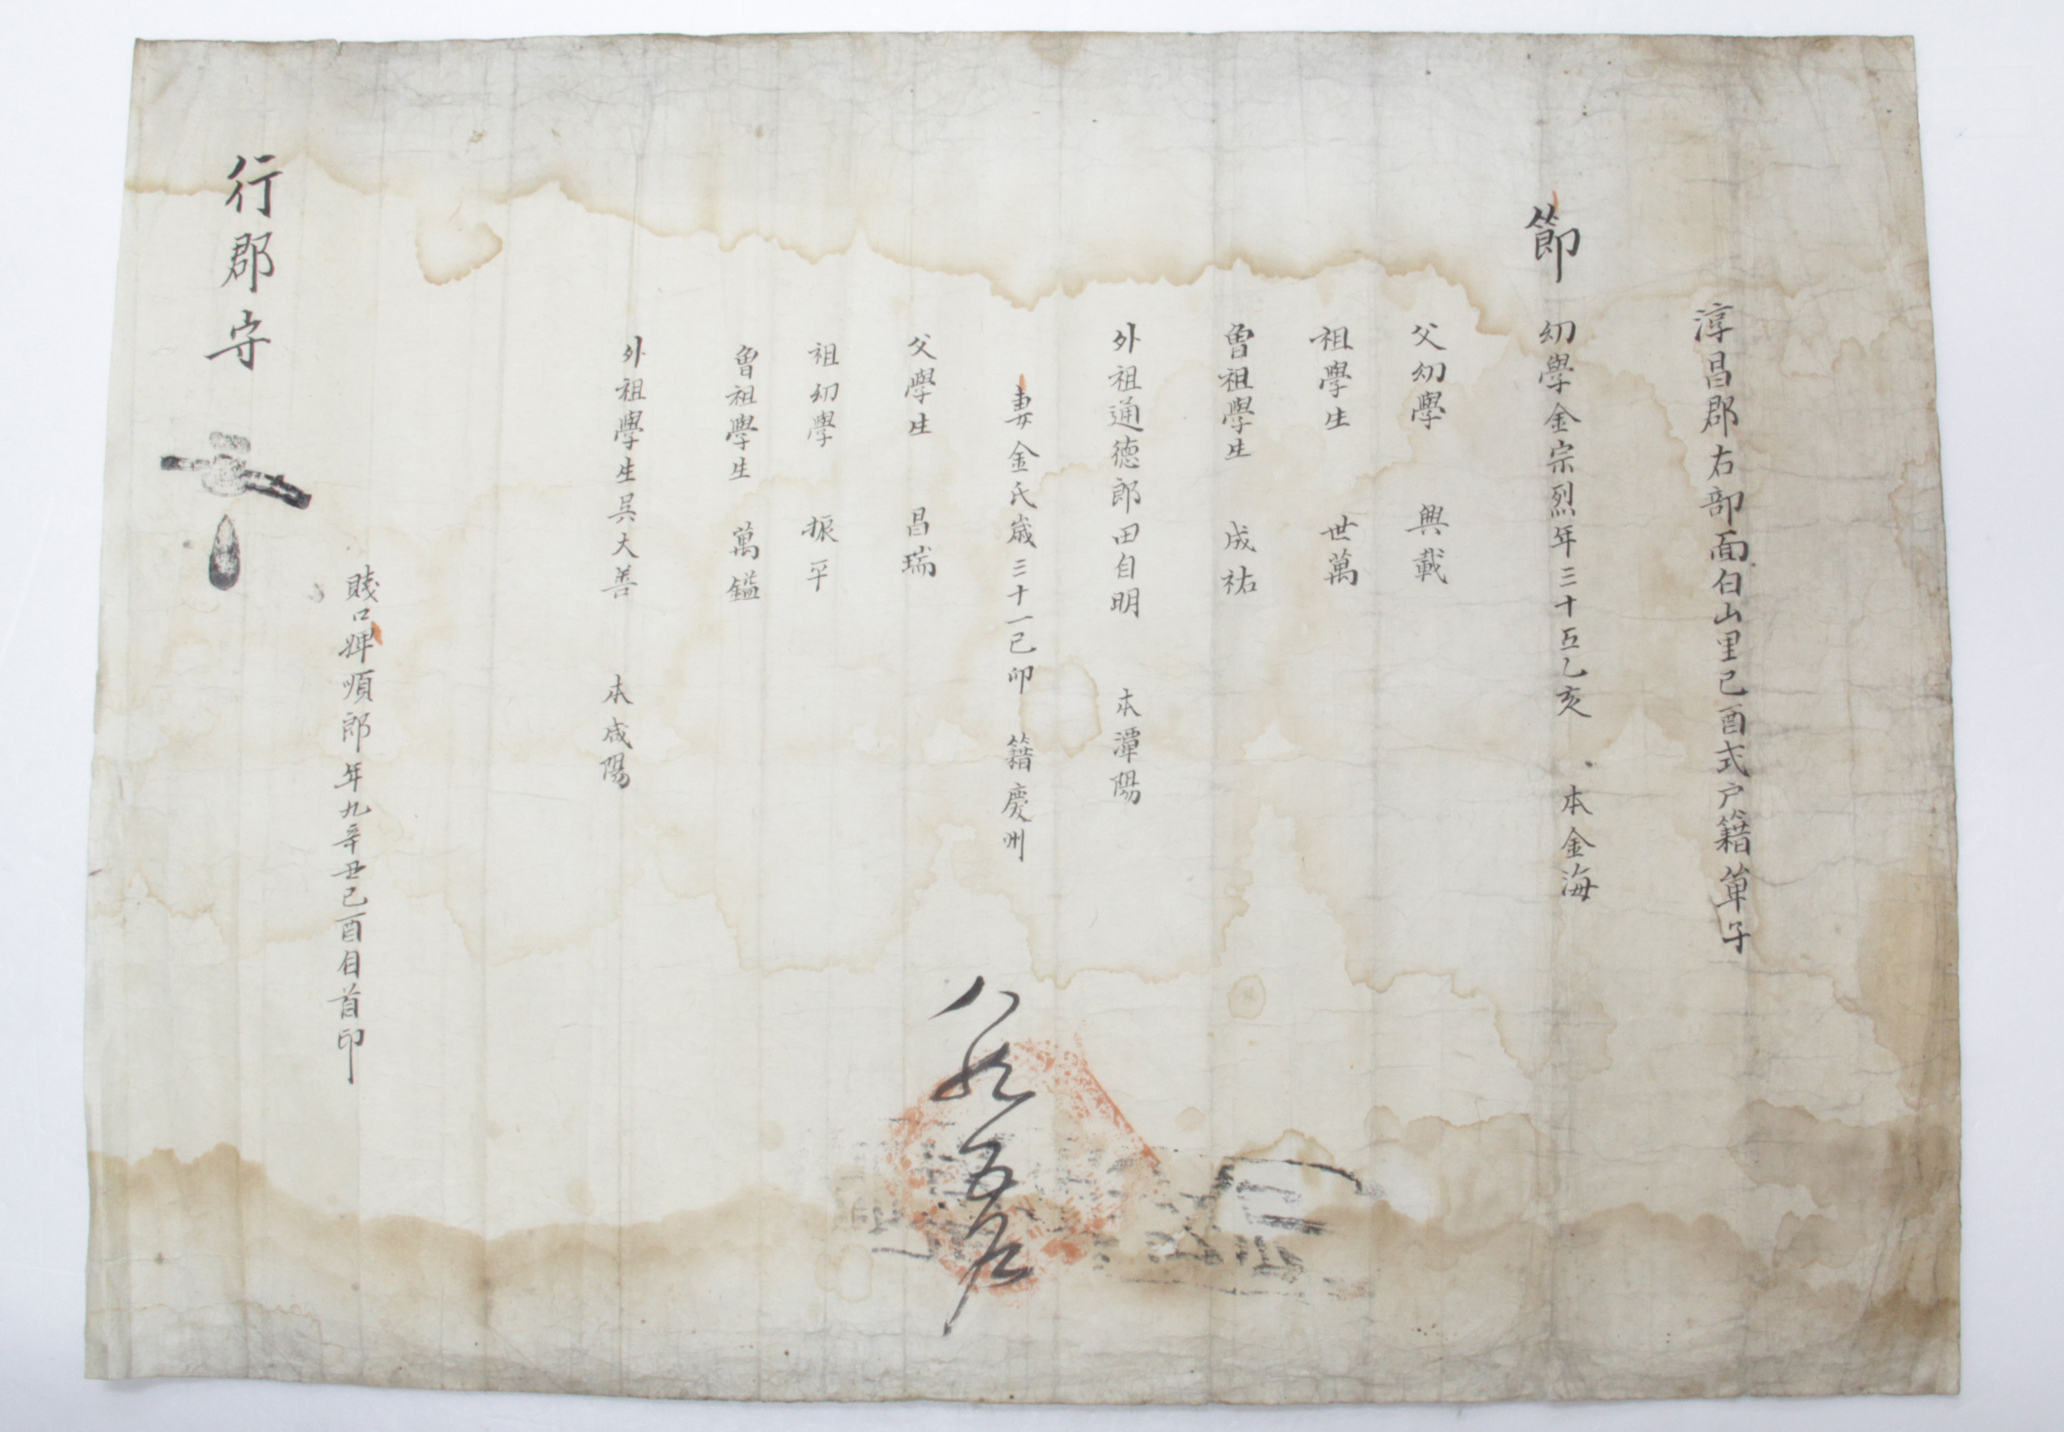 淳昌郡右部面白山里己酉式戶籍單子
節 幼學金宗烈年三十五乙亥 本金海
父幼學 興載
祖學生 世萬
曾祖學生 成祐
外祖通德郎田自明 本潭陽
妻金氏歲三十一己卯 籍慶州
父學生 昌瑞
祖幼學 振平
曾祖學生 萬鎰
外祖學生吳大善 本咸陽
賤口婢順郎年九辛丑己酉自首印
行郡守